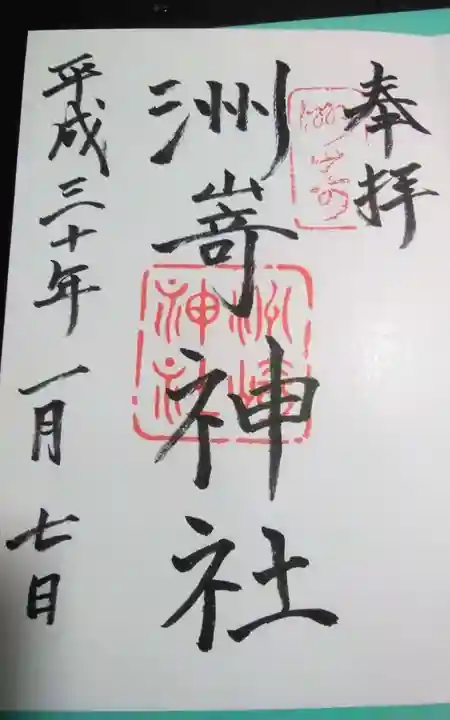 奉拝
洲嵜神社
平成三十年一月七日